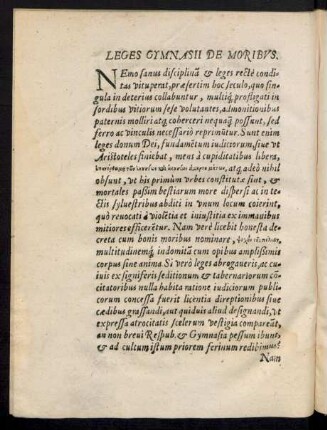 LEGES GYMNASII DE MORIBVS.
NEmo sanus disciplinā & leges rectè condi-
tas vituperat, præsertim hoc seculo, quo sin-
gula in deterius collabuntur, multiq́; profligati in
sordibus vitiorum sese volutantes, admonitionibus
paternis molliri atq; coherceri nequaq̃ possunt, sed
ferro ac vinculis necessariò reprimũtur. Sunt enim
leges donum Dei, fundamẽtum iudiciorum, siue vt
Aristoteles finiebat, mens à cupiditatibus libera,
atq, adeò nihil
obsunt, vt his primùm vrbes constitutæ sint, &
mortales paßim bestiarum more dispersi ac in te-
ctis syluestribus abditi in vnum locum coierint,
quò reuocati à violẽtia et iniustitia ex immanibus
mitiores efficerẽtur. Nam verè licebit honesta de-
creta cum bonis moribus nominare,
multitudinemq́; indomitã cum opibus amplißimis
corpus sine anima. Si verò leges abrogaueris, ac cu-
iuis ex signiferis seditionum & tabernariorum cõ-
citatoribus nulla habita ratione iudiciorum publi-
corum concessa fuerit licentia direptionibus siue
cædibus graßandi, aut quiduis aliud designandi, vt
expressa atrocitatis scelerum vestigia compareãt,
an non breui Respub. & Gymnasia pessum ibunt,
& ad cultum istum priorem ferinum redibimus?
Nam